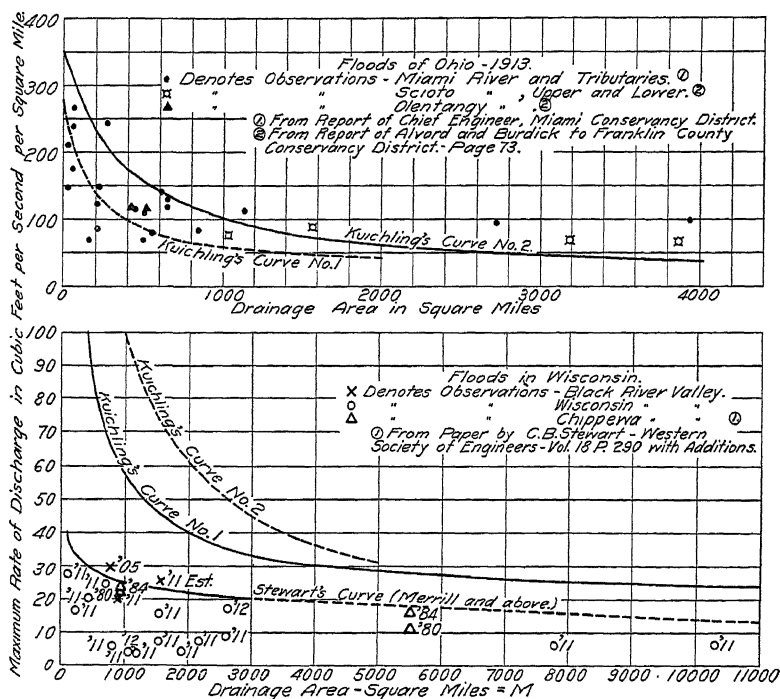 Maximum Rate of Discharge in Cubic Feet per Second per Square Mile.
400
300
200
100
0
Floods of Ohio-1913.
• Denotes Observations - Miami River and Tributaries. ①
¤ " " Scioto " , Upper and Lower. ②
▲ " " Olentangy " . ②
① From Report of Chief Engineer, Miami Conservancy District.
② From Report of Alvord and Burdick to Franklin County
Conservancy District.-Page 73.
Kuichling's Curve No.2.
Kuichling's Curve No.1
0 1000 2000 3000 4000
Drainage Area in Square Miles
100
90
80
70
60
50
40
30
20
10
0
Floods in Wisconsin.
× Denotes Observations - Black River Valley.
o " " Wisconsin " "
△ " " Chippewa " " ①
① From Paper by C.B.Stewart - Western
Society of Engineers-Vol.18 P.290 with Additions.
Kuichling's Curve No.2
Kuichling's Curve No.1
Stewart's Curve (Merrill and above.)
'11 '11 '05 '84 '11 Est.
'11 '80 '11 '11 '12 '84
'11 '80
'11 '12 '11 '11 '11 '11 '11
'11 '11 '11
0 1000 2000 3000 4000 5000 6000 7000 8000 9000 10000 11000
Drainage Area-Square Miles = M